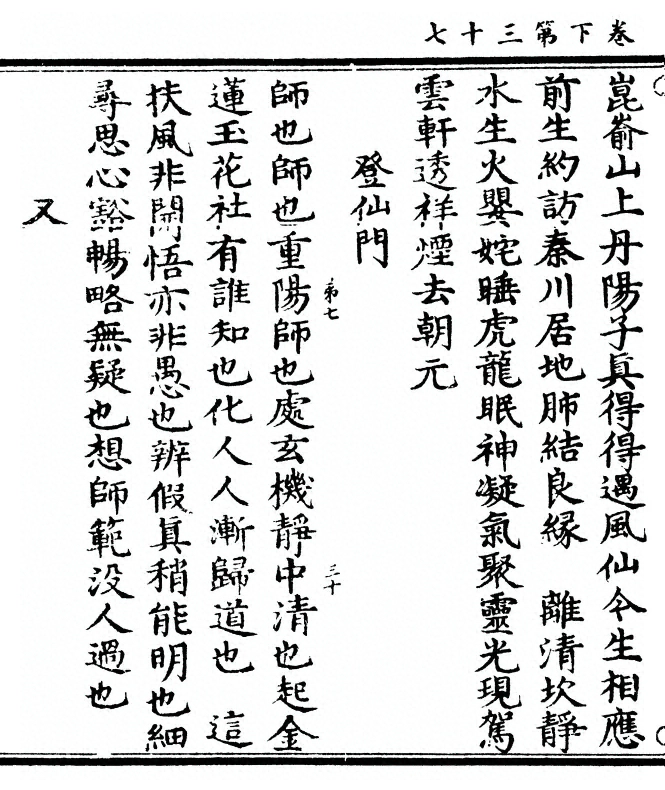 卷下第三十七
崑崳山上丹陽子真得得遇風仙今生相應
前生約訪秦川居地肺結良緣　離清坎靜
水生火嬰姹睡虎龍眠神凝氣聚靈光現駕
雲軒透祥煙去朝元
登仙門
第七
三十
師也師也重陽師也處玄機靜中清也起金
蓮玉花社有誰知也化人人漸歸道也　這
扶風非閙悟亦非愚也辨假真稍能明也細
尋思心豁暢略無疑也想師範没人過也
又